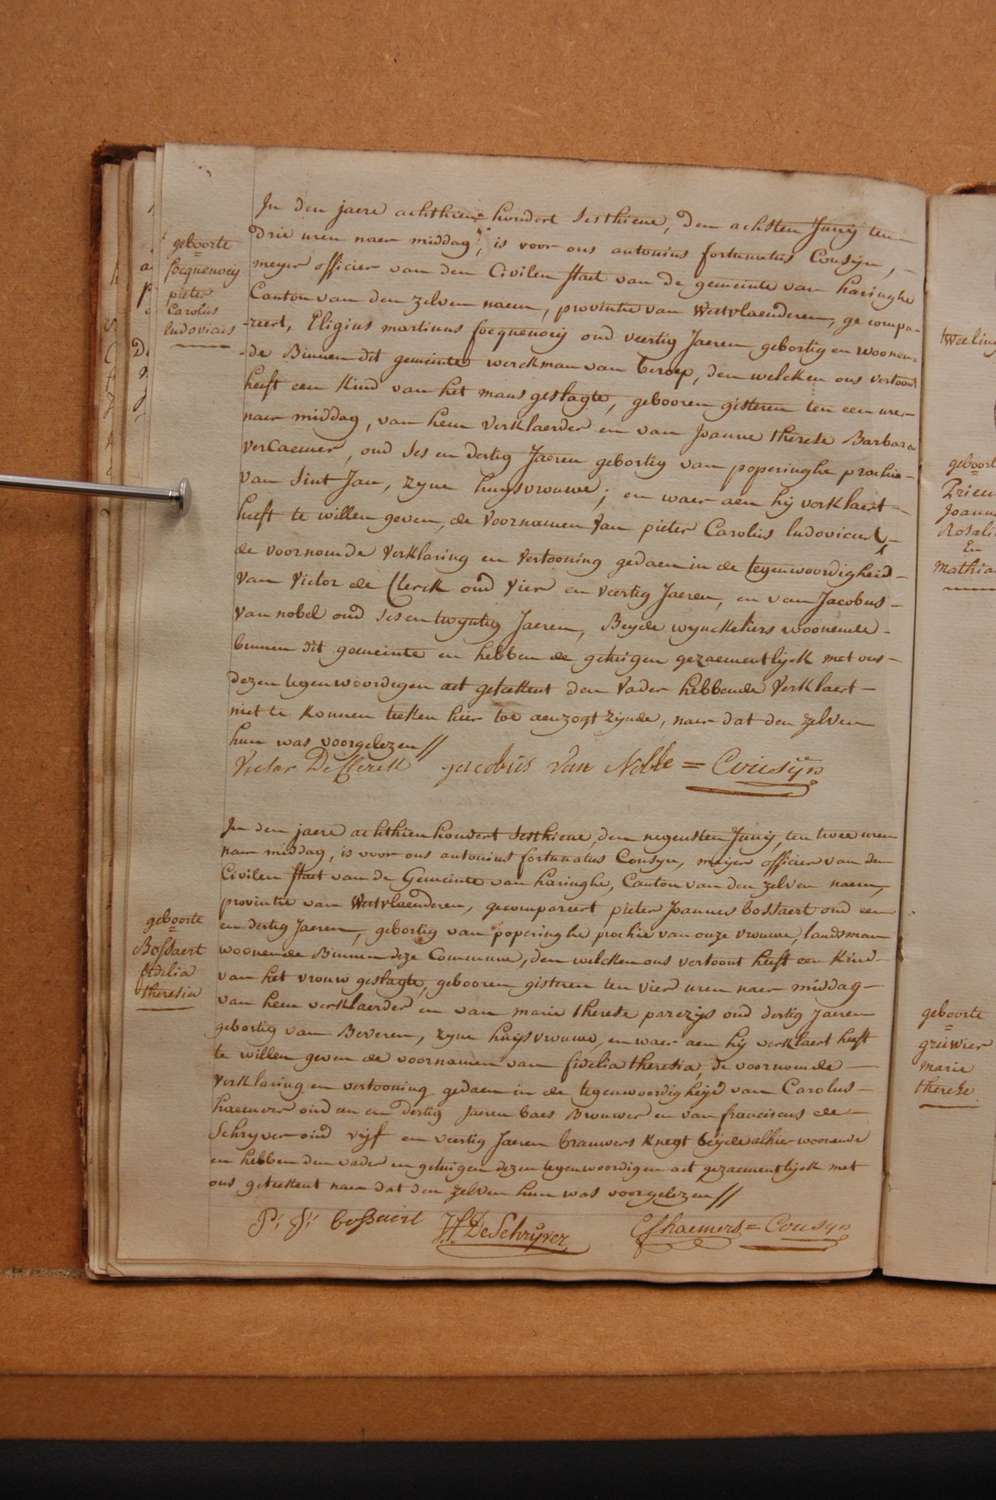 geboorte
=
focquenoeij
pieter
Carolus
ludovicus
In den jaere achthien= hondert Sesthiene, den achsten Junij ten
drie uren naer middag, is voor ons antonius fortunatus Cousyn,
meijer officier van den Civilen staet van de gemeinte van haringhe
Canton van den zelven naem, provintie van Westvlaenderen, ge compa-
-reert, Eligius martinus focquenoeij oud veertig Jaeren gebortig en woonen-
-de Binnen dit gemeinte werckman van beroep, den welcken ons vertoont
heeft een Kind van het mans geslagte, gebooren gisteren ten een ure
naer middag, van hem Verklaerder en van Joanne therese Barbara
Vercaemer, oud Ses en dertig Jaeren gebortig van poperinghe prochie
van Sint Jan, zyne huysvrouwe; en waer aen hij verklaert
heeft te willen geven, de Voornamen Van pieter Carolus ludovicus
de voornoemde Verklaring en Vertooning gedaen in de tegenwoordigheid
Van Victor de Clerck oud Vier en Veertig Jaeren, en van Jacobus
Van nobel oud Ses en twyntig Jaeren, Beyde wynckeliers woonende
binnen dit gemeinte en hebben de getuigen gezaementlijck met ons
dezen tegenwoordigen act geteekent den Vader hebbende Verklaert
niet te konnen teeken hier toe aenzogt zijnde, naer dat den zelven
hun was voorgelezen //
Victor De Clerck Jacobus Van Noble = Cousijn
geboorte
=
Bossaert
fidelia
theresia
In den jaere achthien hondert Sesthiene, den negensten Junij, ten twee uren
naer middag, is voor ons antonius fortunatus Cousyn, meijer officier van den
Civilen staet van de Gemeinte van haringhe, Canton van den zelven naem,
provintie van Westvlaenderen, gecompareert pieter Joannes bossaert oud een
en dertig Jaeren, gebortig van poperinghe prochie van onze vrouwe, landsman
woonende Binnen deze Commune, den welcken ons vertoont heeft een Kind
van het vrouw geslagte, gebooren gisteren ten vier uren naer middag
van hem verklaerder en van marie therese parezijs oud dertig Jaeren
gebortig van Beveren, zyne huijsvrouwe, en waer aen hij verklaert heeft
te willen geven de voornamen van fidelia theresia, de voornoemde
Verklaring en vertooning gedaen in de tegenwoordigheijd van Carolus
haemers oud een en dertig Jaeren baes Brouwer en van franciscus de
Schryver oud vijf en veertig Jaeren brauwers Knegt beijde alhier woonende
en hebben den vader en getuigen dezen tegenwoordigen act gezaementlijck met
ons geteekent naer dat den zelven hun was voorgelezen //
P: J: bossaert De Schrÿver haemers = Cousijn
tweeling
geboorte
Joanne
Rosalie
En
Mathias
geboorte
=
gruwier
marie
therese